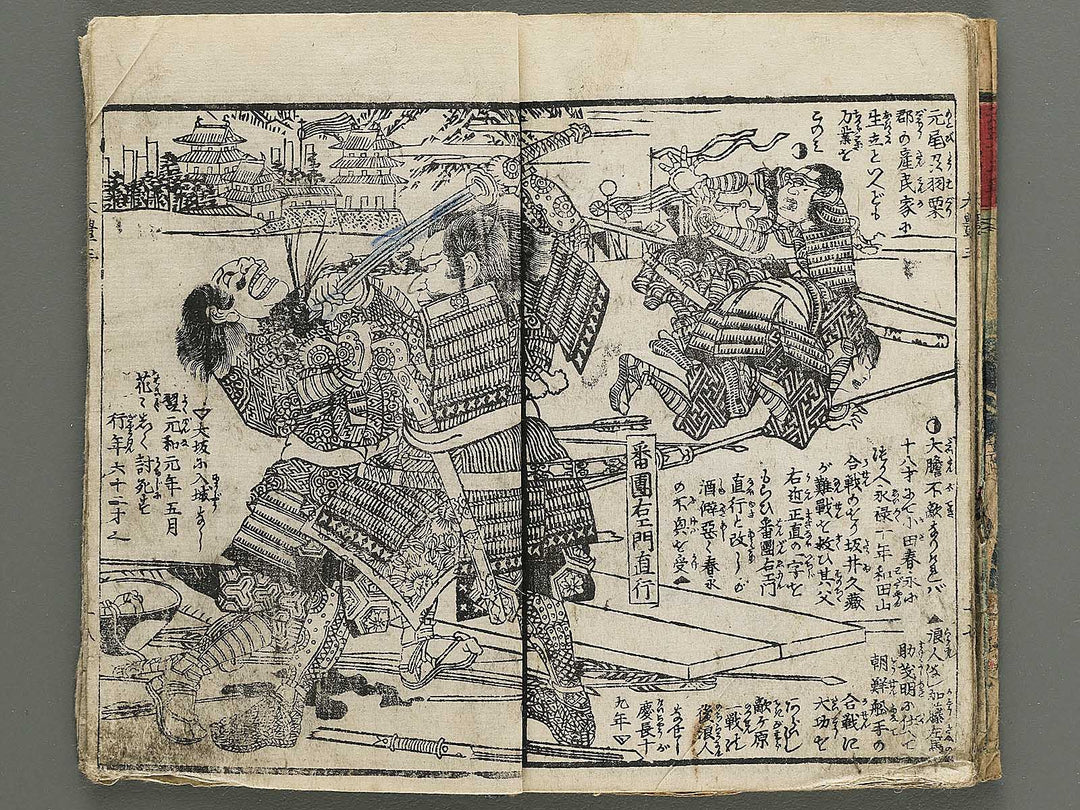 元尾刕羽栗
郡の産民家に
生立といへども
力業を
このみ
大膽不敵
十八才にて小田春永に
永禄十年和田山
合戦のせつ坂井久蔵
が難戦を救ひ其父
右近正直の字を
もらひ番團右エ門
直行と改
酒癖悪く春永
の不興を受▲
番團右エ門直行
▲浪人後加藤左馬
助茂明に仕へて
朝鮮舩手の
合戦に
大功を
敵ヶ原
一戦の
後浪人
慶長十
九年▽
▽大坂に入城
翌元和元年五月
花々しく討死す
行年六十一才